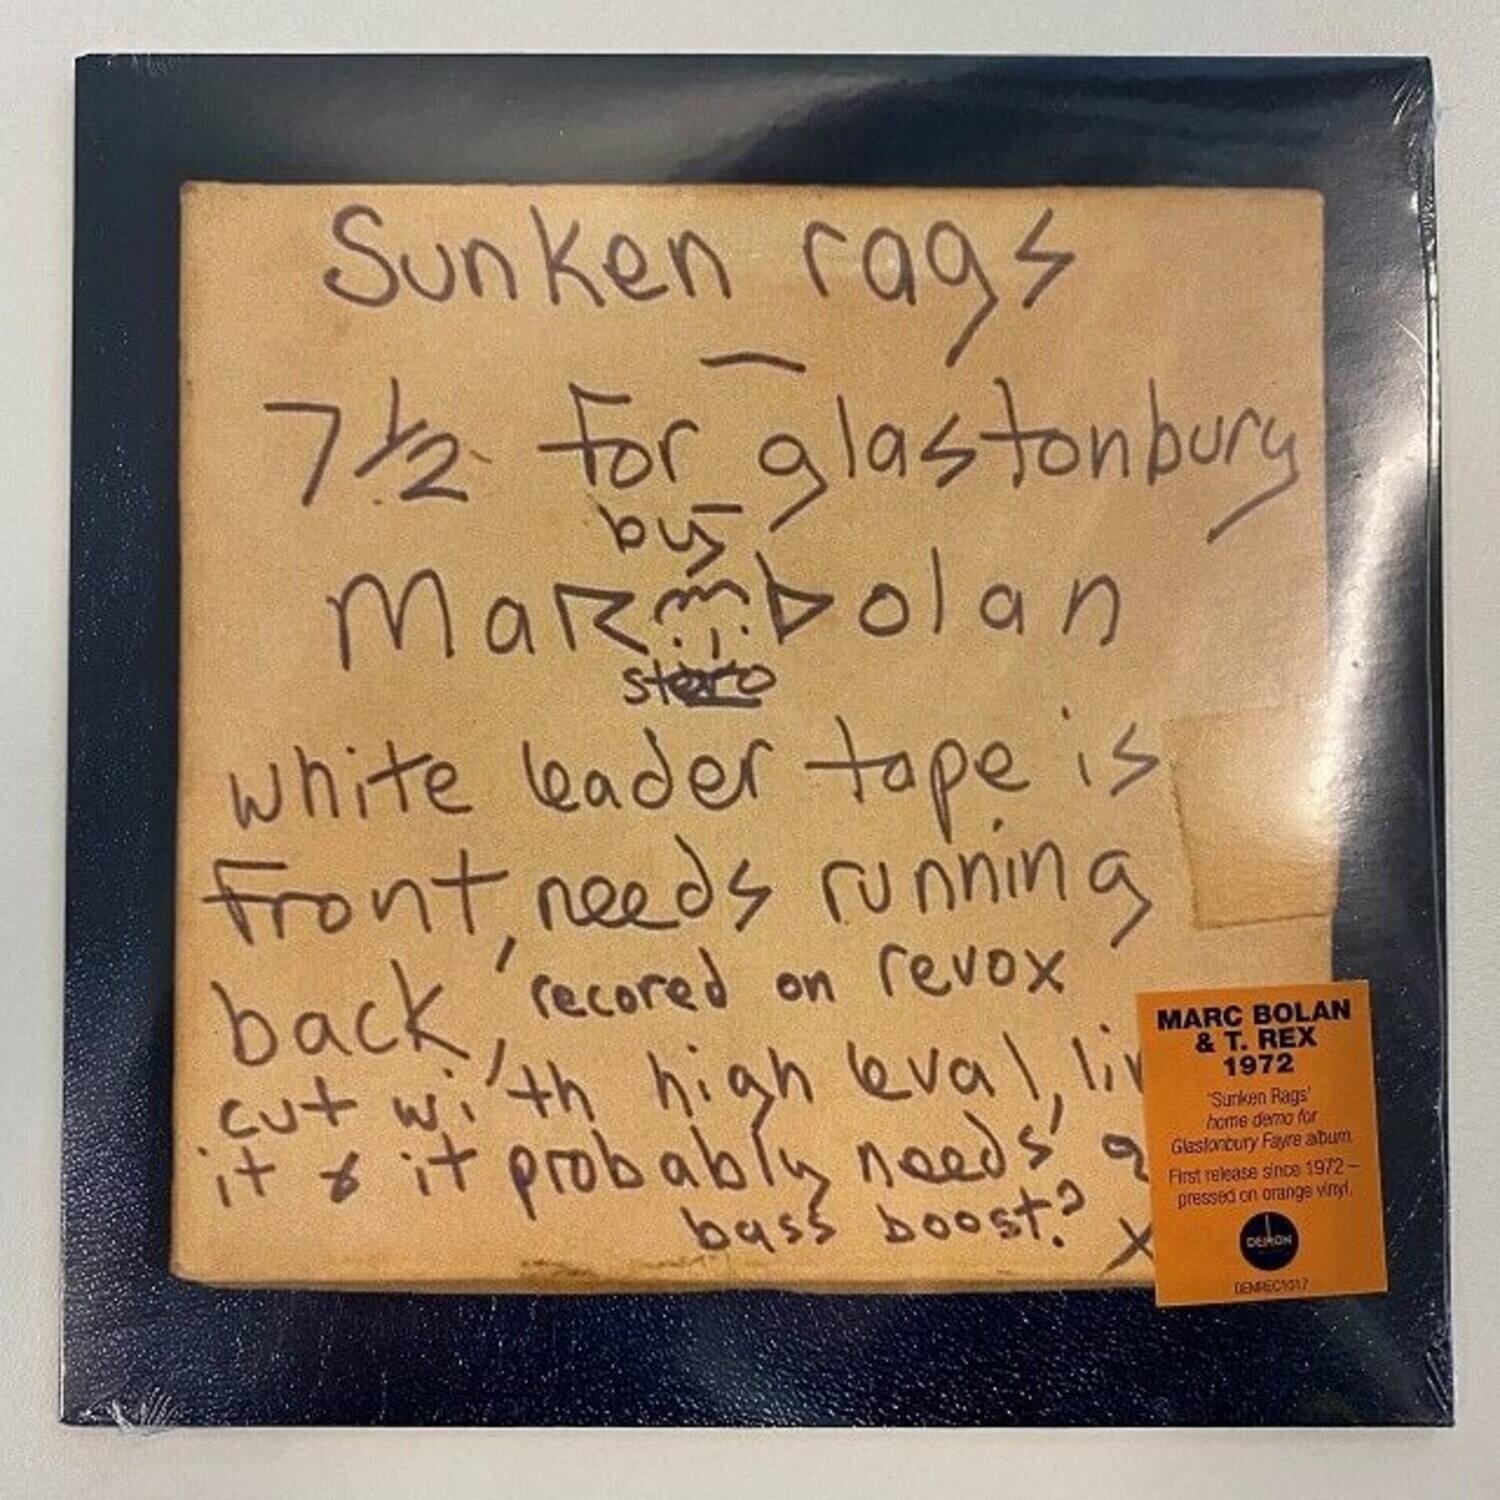 Sunken rags
7 1/2 for glastonbury
by
Marc bolan
stero
white leader tape is
front, needs running
back, recored on revox
cut with high leval,
it & it probably needs a
bass boost? x
MARC BOLAN
& T. REX
1972
'Sunken Rags'
home demo for
Glastonbury Fayre album.
First release since 1972 –
pressed on orange vinyl.
DEMON
DEMREC1017